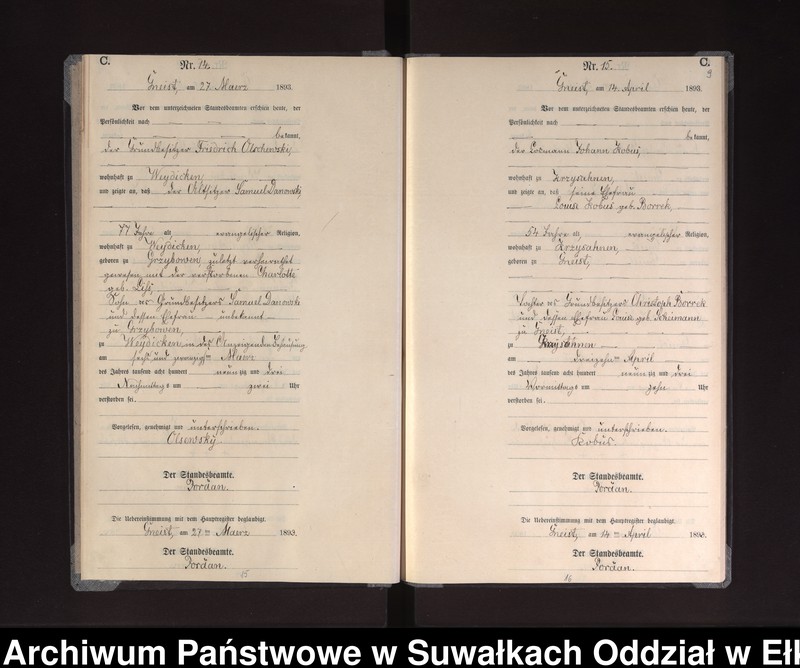 C.
Nr. 14.
Gneist, am 27. Maerz 1893.
Vor dem unterzeichneten Standesbeamten erschien heute, der
Persönlichkeit nach
bekannt,
der Grundbesitzer Friedrich Olschewski,
wohnhaft zu Weydicken,
und zeigte an, daß der Altsitzer Samuel Danowski,
77 Jahre alt, evangelischer Religion,
wohnhaft zu Weydicken,
geboren zu Grzybowen, zuletzt verheirathet
gewesen mit der verstorbenen Charlotte
geb.
Sohn des Grundbesitzers Samuel Danowski
und dessen Ehefrau unbekannt
zu Grzybowen,
zu Weydicken, in des Anzeigenden Behausung
am sechs und zwanzigsten Maerz
des Jahres tausend acht hundert neunzig und drei
Nachmittags um zwei Uhr
verstorben sei.
Vorgelesen, genehmigt und unterschrieben.
Der Standesbeamte.
Die Uebereinstimmung mit dem Hauptregister beglaubigt.
Gneist, am 27ten Maerz 1893.
Der Standesbeamte.
15
C.
9
Nr. 15.
Gneist, am 14. April 1893.
Vor dem unterzeichneten Standesbeamten erschien heute, der
Persönlichkeit nach
bekannt,
der Losmann Johann Kobus,
wohnhaft zu Krzysahnen,
und zeigte an, daß seine Ehefrau
Louise Kobus geb. Borrek,
54 Jahre alt, evangelischer Religion,
wohnhaft zu Krzysahnen,
geboren zu Gneist,
Tochter des Grundbesitzers Christoph Borrek
und dessen Ehefrau Louise geb. Schimann
zu Gneist,
zu
am dreizehnten April
des Jahres tausend acht hundert neunzig und drei
Vormittags um zehn Uhr
verstorben sei.
Vorgelesen, genehmigt und unterschrieben.
Kobus.
Der Standesbeamte.
Die Uebereinstimmung mit dem Hauptregister beglaubigt.
Gneist, am 14ten April 1893.
Der Standesbeamte.
16
Archiwum Państwowe w Suwałkach Oddział w Eł